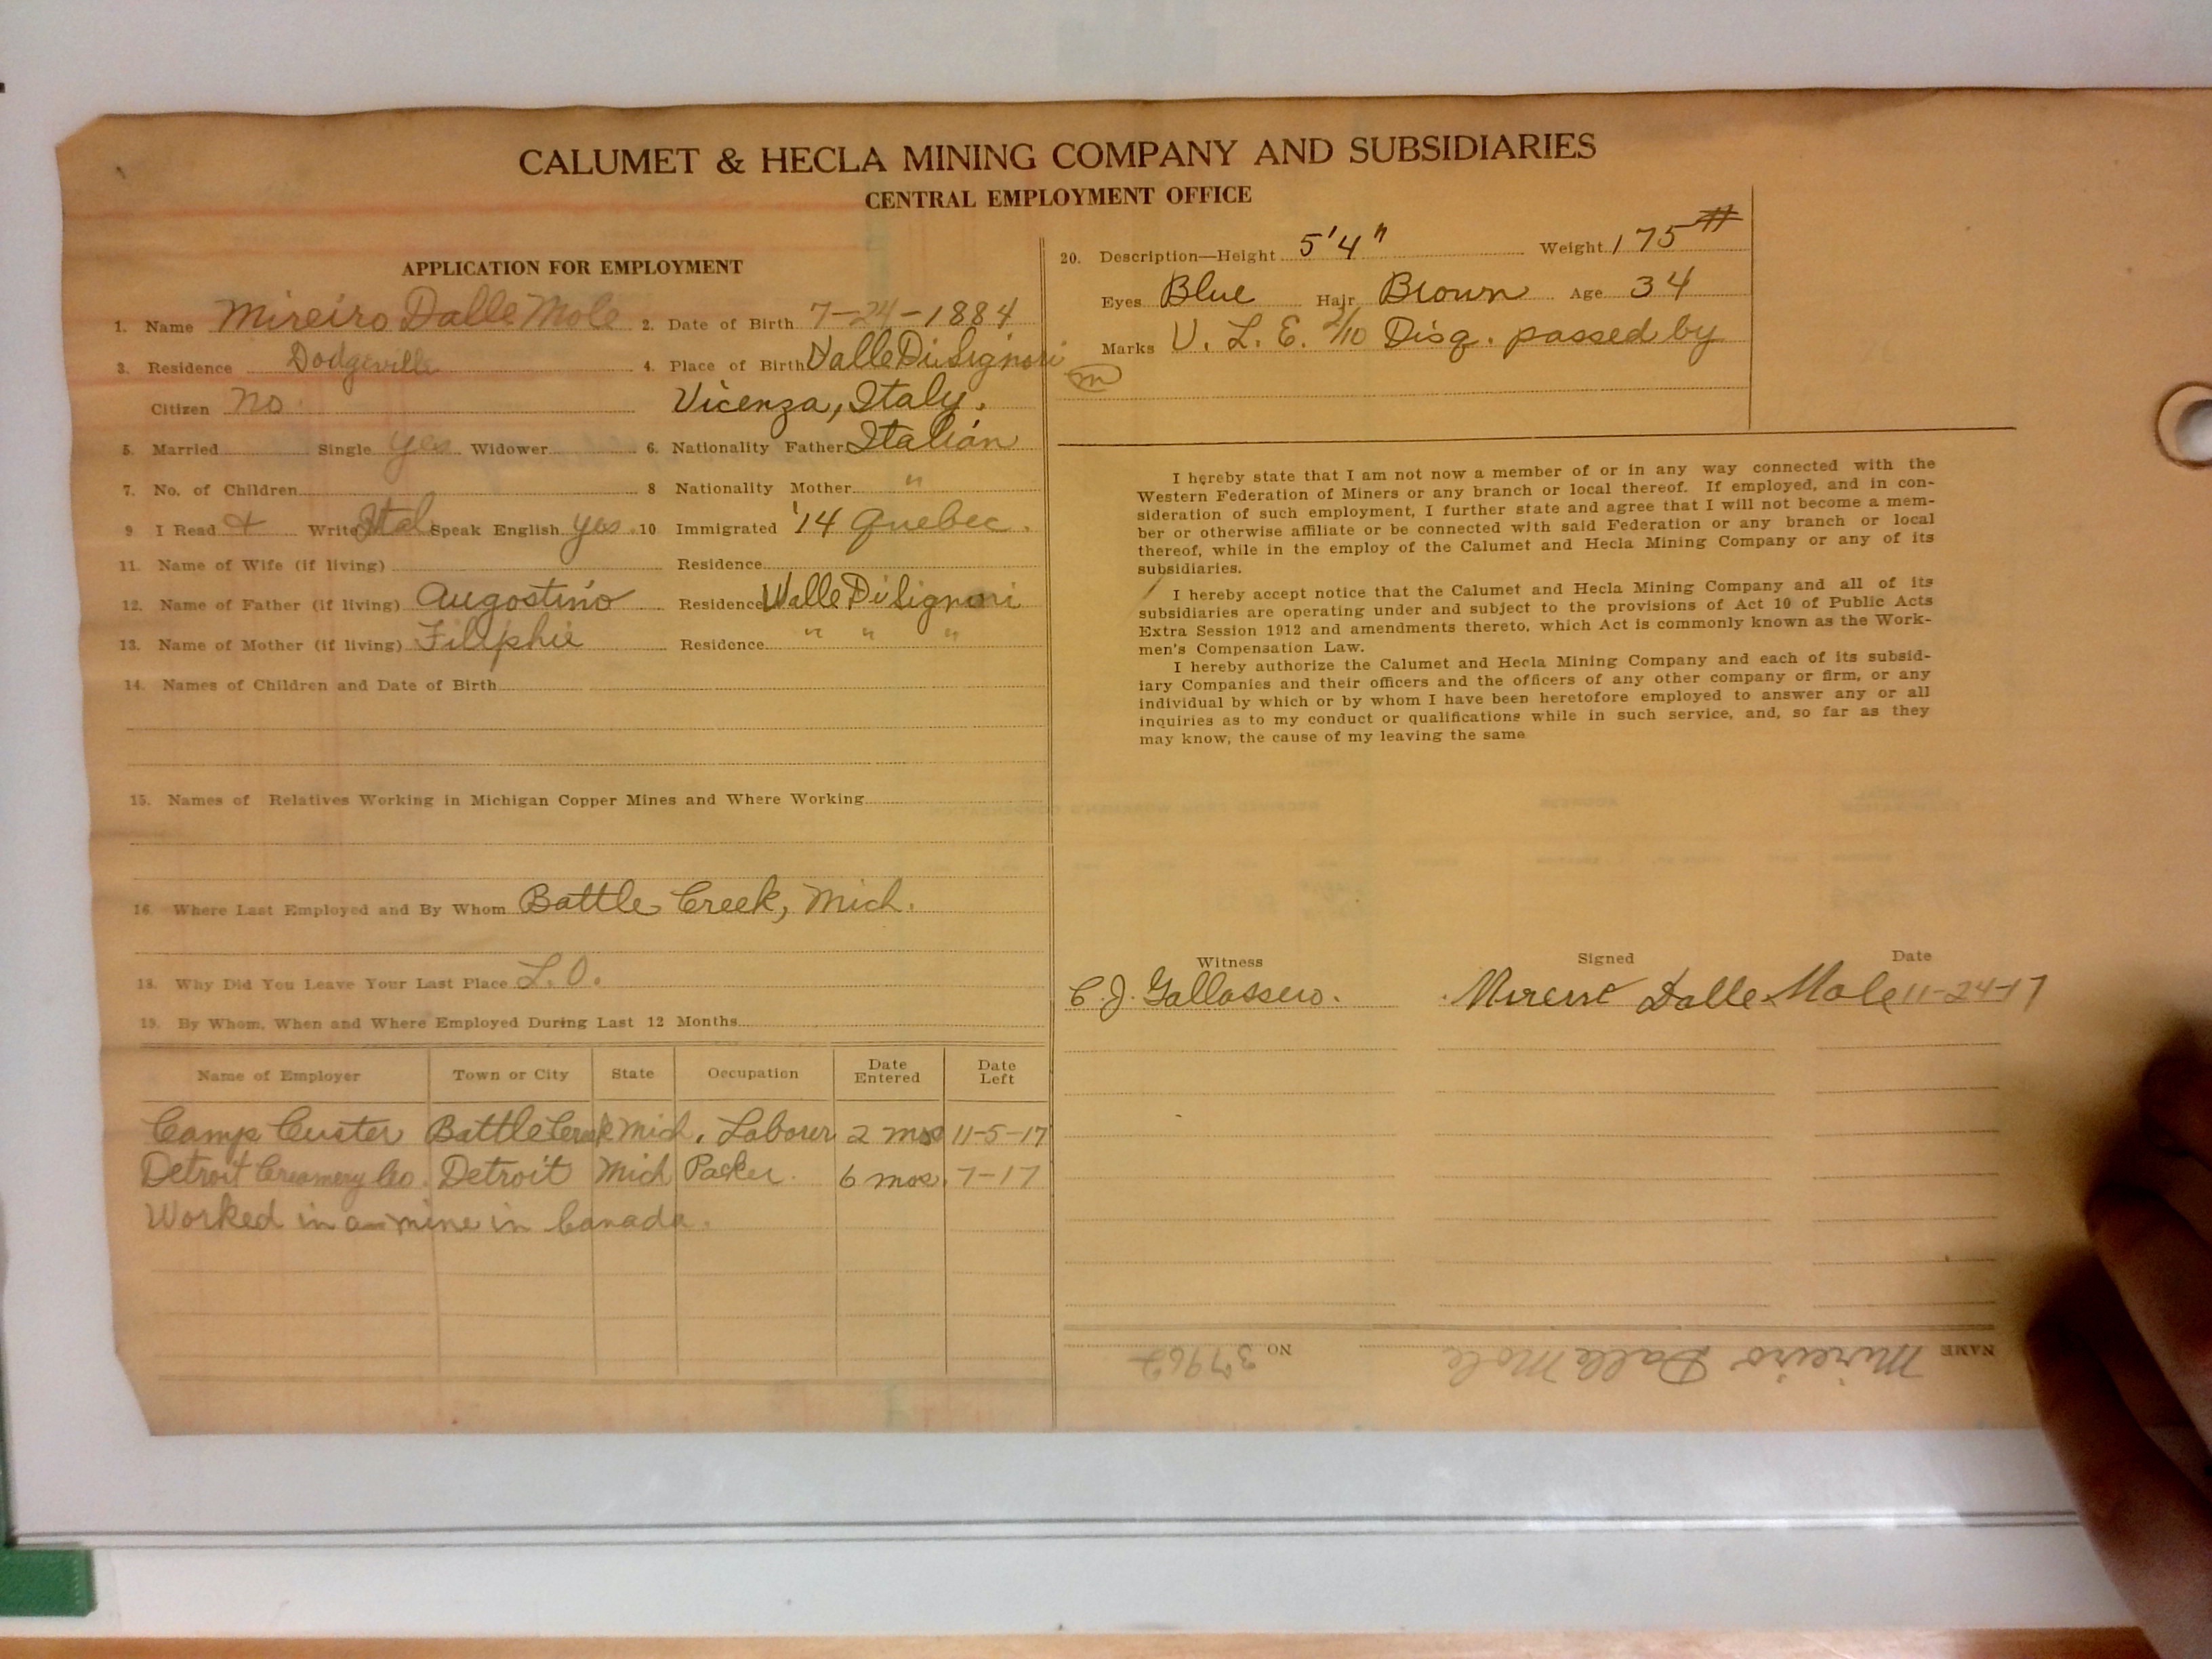 CALUMET & HECLA MINING COMPANY AND SUBSIDIARIES
CENTRAL EMPLOYMENT OFFICE
APPLICATION FOR EMPLOYMENT
1. Name Mireiro Dalle Mole 2. Date of Birth 7-24-1884
3. Residence Dodgeville 4. Place of Birth Valle Di Signori
Citizen no. Vicenza, Italy.
5. Married Single yes Widower 6. Nationality Father Italian
7. No. of Children 8 Nationality Mother "
9 I Read + Write Ital Speak English yes 10 Immigrated '14 Quebec.
11. Name of Wife (if living) Residence
12. Name of Father (if living) Augostino Residence Valle Di Signori
13. Name of Mother (if living) Filiphie Residence " " "
14. Names of Children and Date of Birth
15. Names of Relatives Working in Michigan Copper Mines and Where Working
16. Where Last Employed and By Whom Battle Creek, Mich.
18. Why Did You Leave Your Last Place L.O.
19. By Whom, When and Where Employed During Last 12 Months
Name of Employer Town or City State Occupation Date Entered Date Left
Camp Custer Battle Creek Mich. Laborer 2 mos 11-5-17
Detroit Creamery Co. Detroit Mich Packer. 6 mos. 7-17
Worked in a mine in Canada.
20. Description—Height 5'4" Weight 175 #
Eyes Blue Hair Brown Age 34
Marks V. L. E. 2/10 Disq. passed by
m
I hereby state that I am not now a member of or in any way connected with the
Western Federation of Miners or any branch or local thereof. If employed, and in con-
sideration of such employment, I further state and agree that I will not become a mem-
ber or otherwise affiliate or be connected with said Federation or any branch or local
thereof, while in the employ of the Calumet and Hecla Mining Company or any of its
subsidiaries.
I hereby accept notice that the Calumet and Hecla Mining Company and all of its
subsidiaries are operating under and subject to the provisions of Act 10 of Public Acts
Extra Session 1912 and amendments thereto, which Act is commonly known as the Work-
men's Compensation Law.
I hereby authorize the Calumet and Hecla Mining Company and each of its subsid-
iary Companies and their officers and the officers of any other company or firm, or any
individual by which or by whom I have been heretofore employed to answer any or all
inquiries as to my conduct or qualifications while in such service, and, so far as they
may know, the cause of my leaving the same
Witness Signed Date
C. J. Gallassero. Dalle Mole 11-24-17
NAME Mireiro Dalle Mole NO. 37962